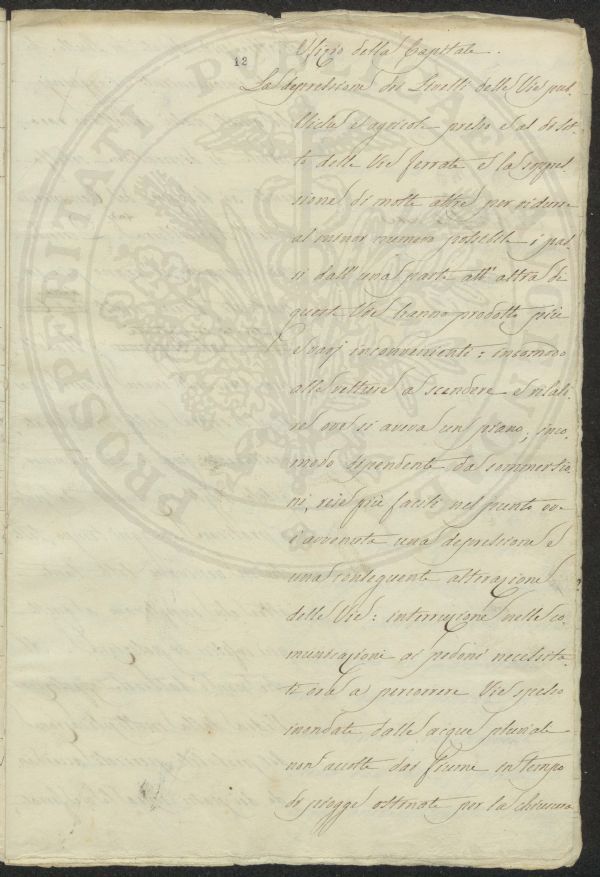 12
Ufizio della Capitale.
La depressione dei Livelli delle Vie pub-
bliche e agricole presso e al di sot-
to delle Vie ferrate e la soppres-
sione di molte altre per ridurre
al minor numero possibile i pas-
si dall'una parte all'altra di
queste Vie hanno prodotto più
e varj inconvenienti: incomodo
alle vetture a scendere e risali-
re ove si aveva un piano; inco-
modo dipendente da sommersio-
ni, rese più facili nel punto ov'
è avvenuta una depressione e
una conseguente alterazione
delle Vie: interruzione nelle co-
municazioni ai pedoni necessita-
ti ora a percorrere Vie spesso
inondate dalle acque pluviali
non accolte dai fiumi in tempo
di piogge ostinate per la chiusura
PROSPERITATI PVBLICAE